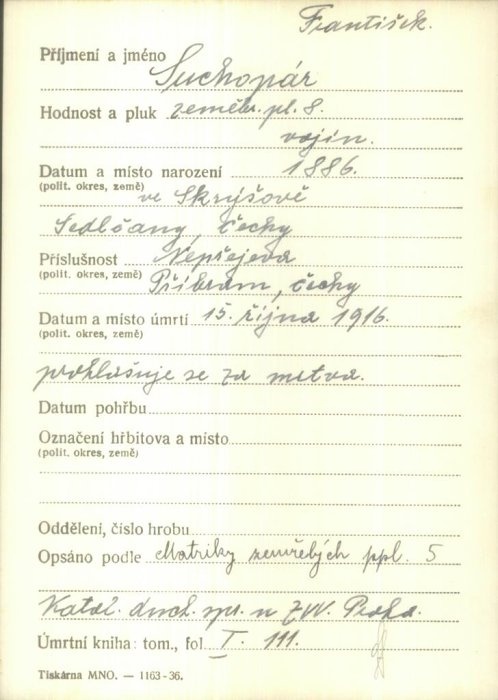 František.
Příjmení a jméno Suchopár
Hodnost a pluk zeměbr. pl. 8.
vojín.
Datum a místo narození 1886.
(polit. okres, země) ve Skrýšově
Sedlčany, Čechy
Příslušnost Nepřejova
(polit. okres, země) Příbram, Čechy
Datum a místo úmrtí 15. října 1916.
(polit. okres, země)
prohlašuje se za mrtva.
Datum pohřbu
Označení hřbitova a místo
(polit. okres, země)
Oddělení, číslo hrobu
Opsáno podle Matriky zemřelých ppl. 5
Katol. duch. spr. u ZVV. Praha.
Úmrtní kniha: tom., fol. I. 111.
Tiskárna MNO. — 1163-36.